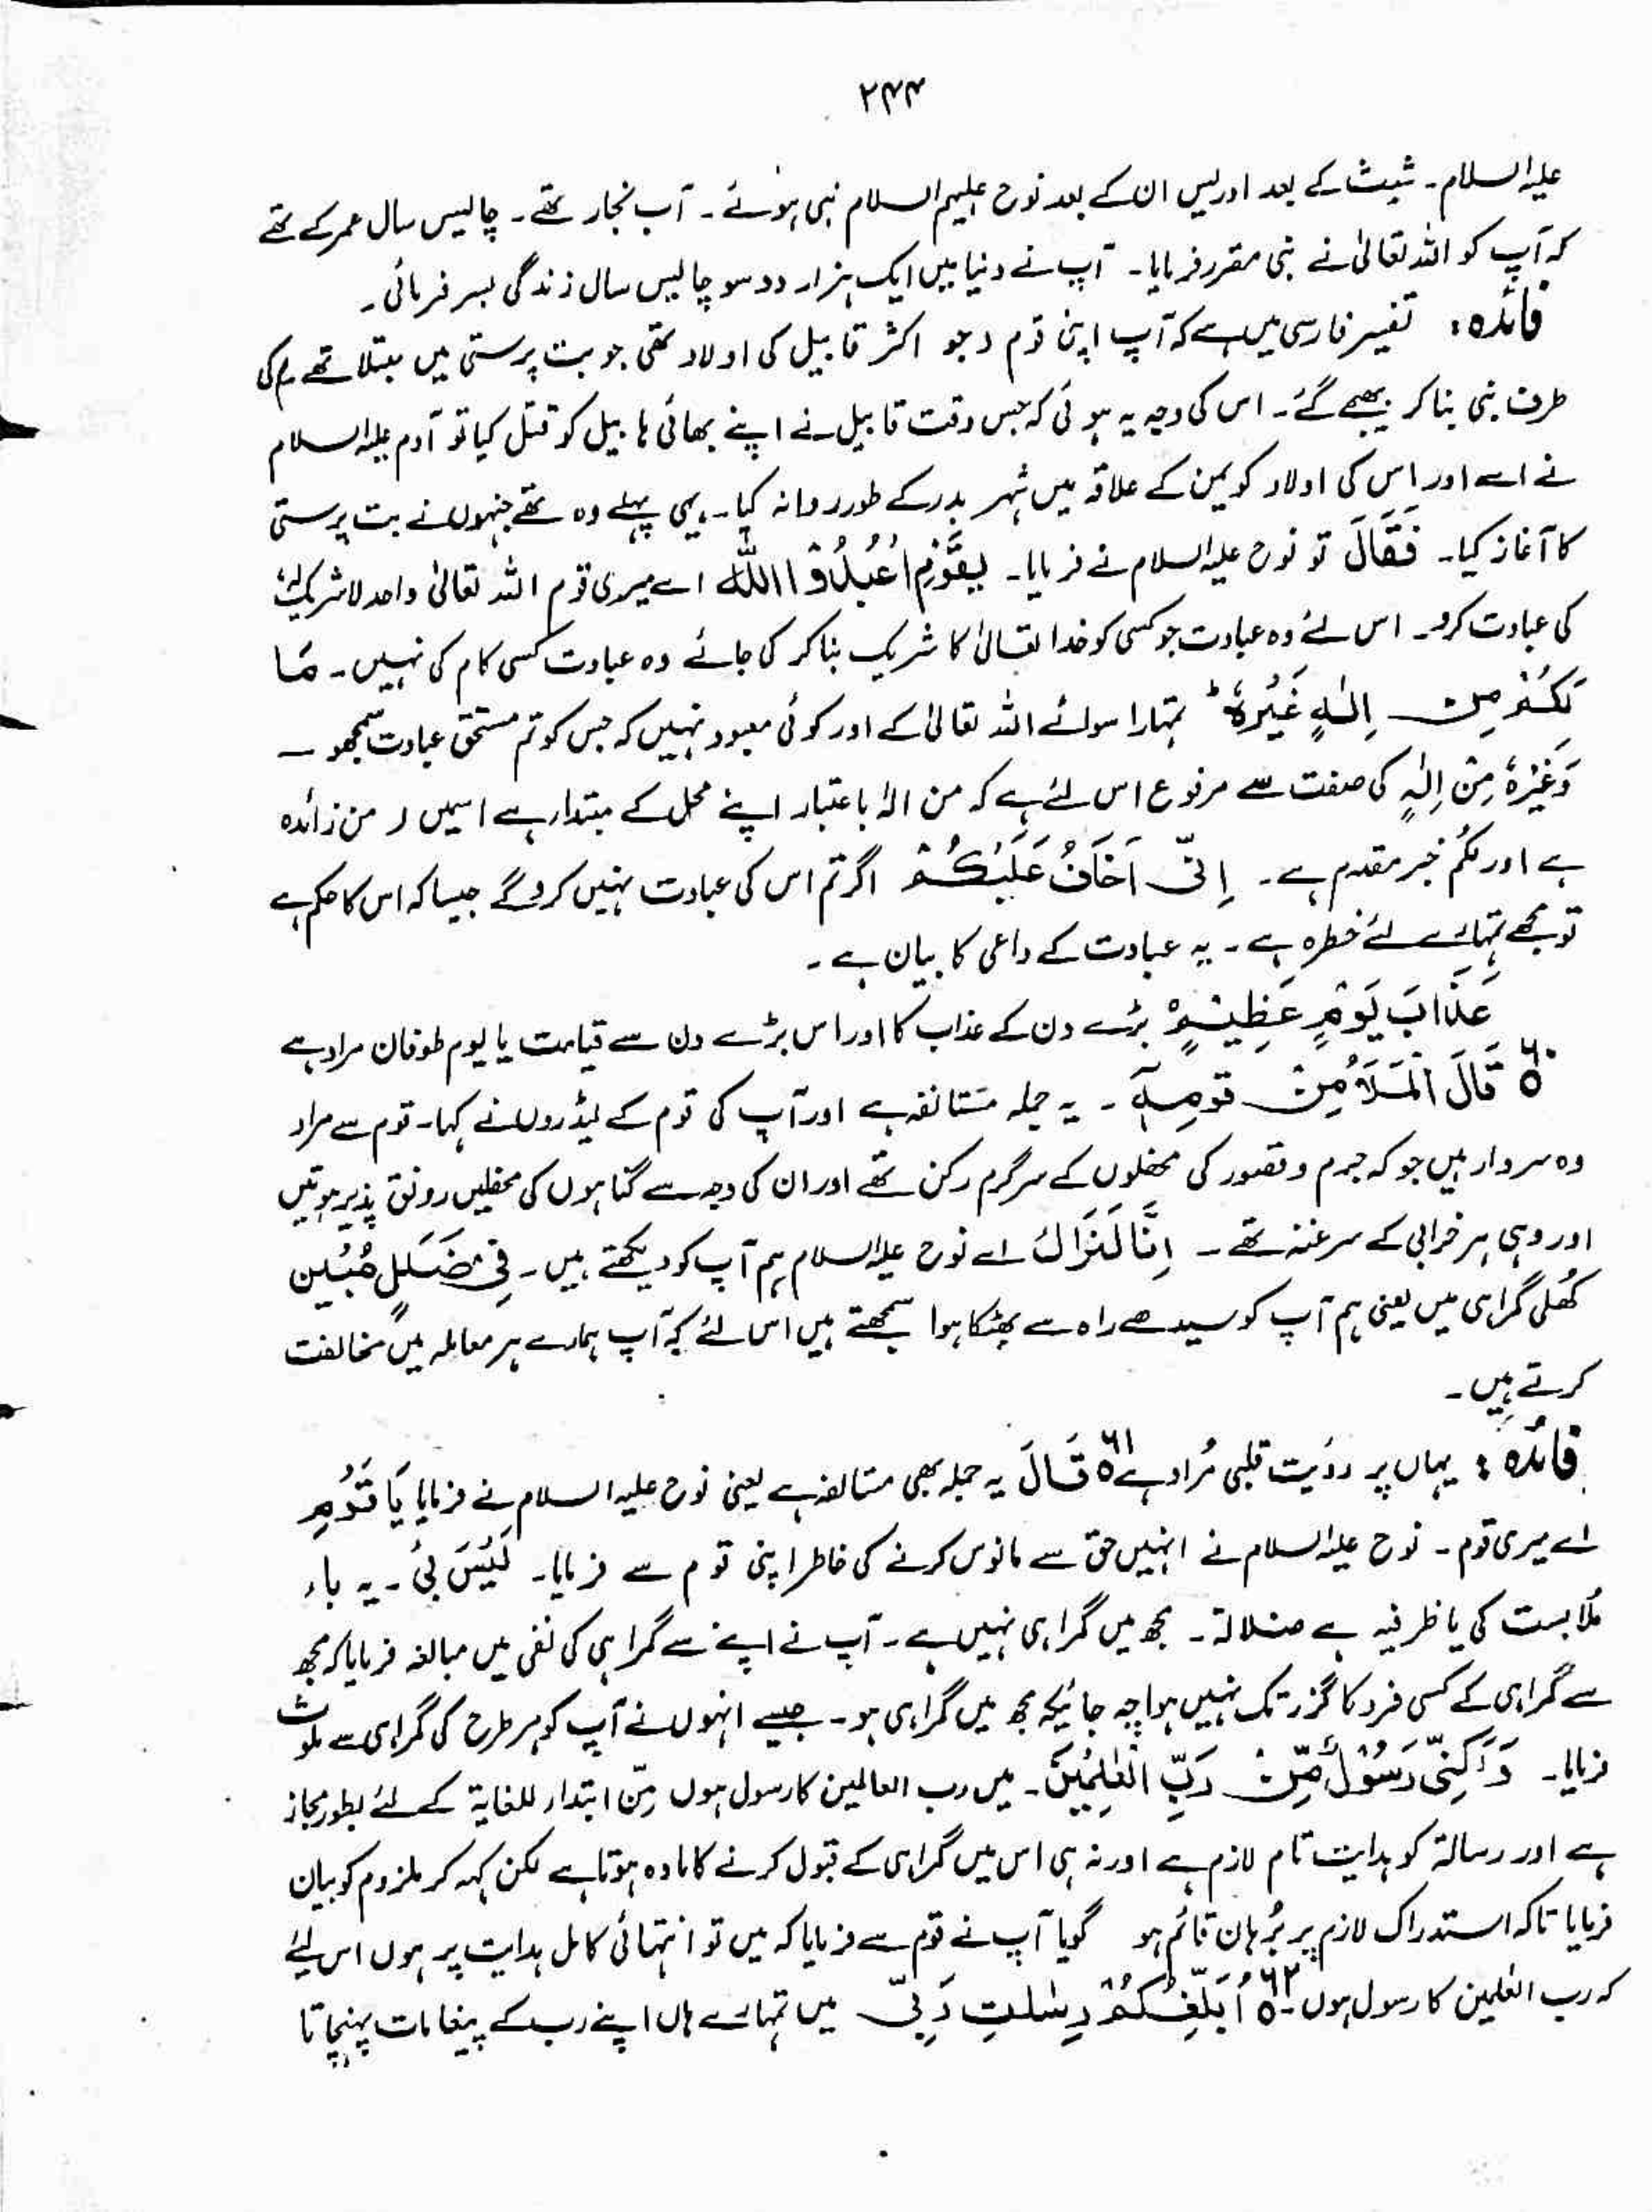 ۲۴۴
علیہ السلام۔ شیث کے بعد ادریس ان کے بعد نوح علیہم السلام نبی ہوئے۔ آپ نجار تھے۔ چالیس سال عمر کے تھے
کہ آپ کو اللہ تعالیٰ نے نبی مقرر فرمایا۔ آپ نے دنیا میں ایک ہزار دو سو چالیس سال زندگی بسر فرمائی۔
فائدہ: تفسیر فارسی میں ہے کہ آپ اپنی قوم (جو اکثر قابیل کی اولاد تھی جو بت پرستی میں مبتلا تھے) کی
طرف نبی بنا کر بھیجے گئے۔ اس کی وجہ یہ ہوئی کہ جس وقت قابیل نے اپنے بھائی ہابیل کو قتل کیا تو آدم علیہ السلام
نے اسے اور اس کی اولاد کو یمن کے علاقہ میں شہر بدر کے طور روانہ کیا۔ یہی پہلے وہ تھے جنہوں نے بت پرستی
کا آغاز کیا۔ فَقَالَ تو نوح علیہ السلام نے فرمایا۔ یٰقَوْمِ اعْبُدُوا اللّٰهَ اے میری قوم اللہ تعالیٰ واحد لاشریک لہٗ
کی عبادت کرو۔ اس لئے وہ عبادت جو کسی کو خدا تعالیٰ کا شریک بنا کر کی جائے وہ عبادت کسی کام کی نہیں۔ مَا
لَکُمْ مِنْ اِلٰہٍ غَیْرُہٗ ؕ تمہارا سوائے اللہ تعالیٰ کے اور کوئی معبود نہیں کہ جس کو تم مستحق عبادت سمجھو۔
وَغَیْرُہٗ مِنْ اِلٰہٍ کی صفت سے مرفوع اس لئے ہے کہ من الہٰ باعتبار اپنے محل کے مبتدا ہے اسمیں ر من زائدہ
ہے اور لکُم خبر مقدم ہے۔ اِنِّیْ اَخَافُ عَلَیْکُمْ اگر تم اس کی عبادت نہیں کرو گے جیسا کہ اس کا حکم ہے
تو مجھے تمہارے لئے خطرہ ہے۔ یہ عبادت کے داعی کا بیان ہے۔
عَذَابَ یَوْمٍ عَظِیْمٍ بڑے دن کے عذاب کا اور اس بڑے دن سے قیامت یا یوم طوفان مراد ہے
۶۰ قَالَ الْمَلَاُ مِنْ قَوْمِہٖٓ۔ یہ جملہ مستانفہ ہے اور آپ کی قوم کے لیڈروں نے کہا۔ قوم سے مراد
وہ سردار ہیں جو کہ جرم و قصور کی محفلوں کے سرگرم رکن تھے اور ان کی وجہ سے گناہوں کی محفلیں رونق پذیر ہوتیں
اور وہی ہر خرابی کے سرغنہ تھے۔ اِنَّا لَنَرٰاكَ اے نوح علیہ السلام ہم آپ کو دیکھتے ہیں۔ فِیْ ضَلٰلٍ مُّبِیْن
کھلی گمراہی میں یعنی ہم آپ کو سیدھے راہ سے بھٹکا ہوا سمجھتے ہیں اس لئے کہ آپ ہمارے ہر معاملہ میں مخالفت
کرتے ہیں۔
فائدہ: یہاں پر روئیت قلبی مُراد ہے ۶۱ قَالَ یہ جملہ بھی مستانفہ ہے یعنی نوح علیہ السلام نے فرمایا یَا قَوْمِ
اے میری قوم۔ نوح علیہ السلام نے انہیں حق سے مانوس کرنے کی خاطر اپنی قوم سے فرمایا۔ لَیْسَ بِیْ۔ یہ باء
مُلابست کی یا ظرفیہ ہے ضلالۃ۔ مجھ میں گمراہی نہیں ہے۔ آپ نے اپنے سے گمراہی کی نفی میں مبالغہ فرمایا کہ مجھ
سے گمراہی کے کسی فرد کا گزر تک نہیں ہوا چہ جائیکہ مجھ میں گمراہی ہو۔ جیسے انہوں نے آپ کو ہر طرح کی گمراہی سے ملوث
فرمایا۔ وَلٰکِنِّیْ رَسُوْلٌ مِّنْ رَّبِّ الْعٰلَمِیْنَ۔ میں رب العالمین کا رسول ہوں مِنْ ابتداء للغایۃ کے لئے بطور مجاز
ہے اور رسالۃ کو ہدایت تام لازم ہے اور نہ ہی اس میں گمراہی کے قبول کرنے کا مادہ ہوتا ہے لکن کہہ کر ملزوم کو بیان
فرمایا تاکہ استدراک لازم پر بُرہان قائم ہو گویا آپ نے قوم سے فرمایا کہ میں تو انتہائی کامل ہدایت پر ہوں اس لیئے
کہ رب العٰلمین کا رسول ہوں۔ ۶۲ اُبَلِّغُکُمْ رِسٰلٰتِ رَبِّیْ میں تمہارے ہاں اپنے رب کے پیغامات پہنچاتا